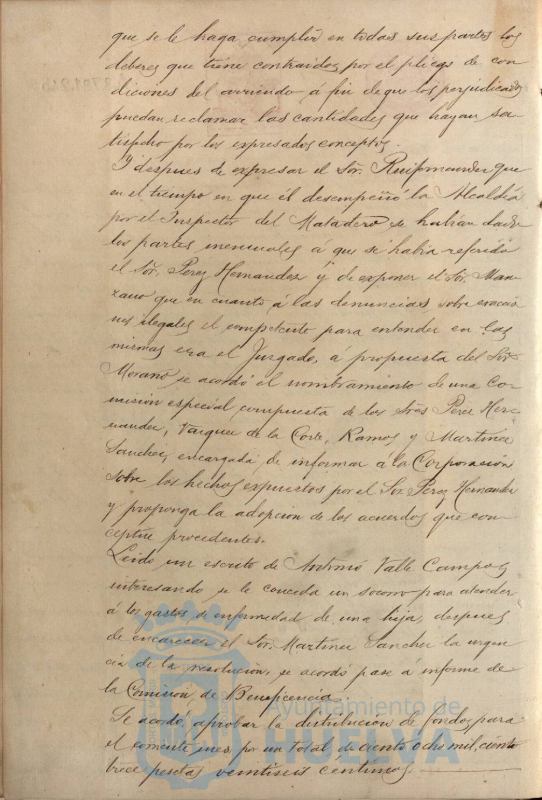 que se le haga cumplir en todas sus partes los
deberes que tiene contraidos por el pliego de con
diciones del arriendo á fin de que los perjudicados
puedan reclamar las cantidades que hayan sa-
tisfecho por los expresados conceptos.
Y despues de expresar el Sor. Ruifernandez que
en el tiempo en que él desempeñó la Alcaldía
por el Inspector del Matadero se habian dado
los partes mensuales á que se habia referido
el Sor. Perez Hernandez y de exponer el Sor. Man-
zano que en cuanto á las denuncias sobre exaccio
nes ilegales el competente para entender en las
mismas era el Juzgado, á propuesta del Sor
Morano se acordó el nombramiento de una Co-
mision especial compuesta de los Sres Perez Her-
nandez, Vazquez de la Corte, Ramos y Martinez
Sanchez, encargada de informar á la Corporacion
sobre los hechos expuestos por el Sor. Perez Hernandez
y proponga la adopcion de los acuerdos que con-
ceptue procedentes.
Leido un escrito de Antonio Valle Campos
interesando se le conceda un socorro para atender
á los gastos de enfermedad de una hija, despues
de encarecer el Sor. Martinez Sanchez la urgen
cia de la resolucion, se acordó pase á informe de
la Comision de Beneficencia.
Se acordó aprobar la distribucion de fondos para
el corriente mes por un total de ciento ocho mil, ciento
trece pesetas veintiseis centimos
Ayuntamiento de
HUELVA